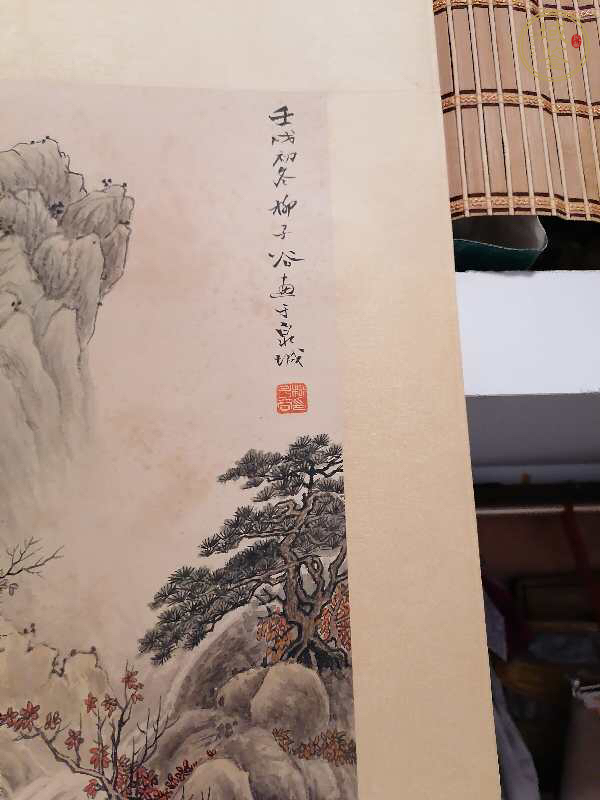 壬戌初冬柳子谷画于泉城